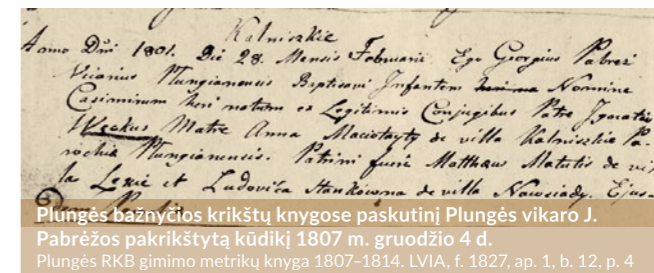 Kalniszkie
Anno Dni 1801. Die 28. Mensis Februarii. Ego Georgius Pabreż
Vicarius Plungianensis Baptisavi Infantem Nomine
Casimirum heri natum ex Legitimis Conjugibus Patre Ignatio
Węckus Matre Anna Maciotayty de villa Kalniszkie Pa-
rochiæ Plungianensis. Patrini fuere Matthæus Matutis de vil
la et Ludovica Stankowna de villa Nawsiady. Ejus-
Plungės bažnyčios krikštų knygose paskutinį Plungės vikaro J.
Pabrėžos pakrikštytą kūdikį 1807 m. gruodžio 4 d.
Plungės RKB gimimo metrikų knyga 1807–1814. LVIA, f. 1827, ap. 1, b. 12, p. 4